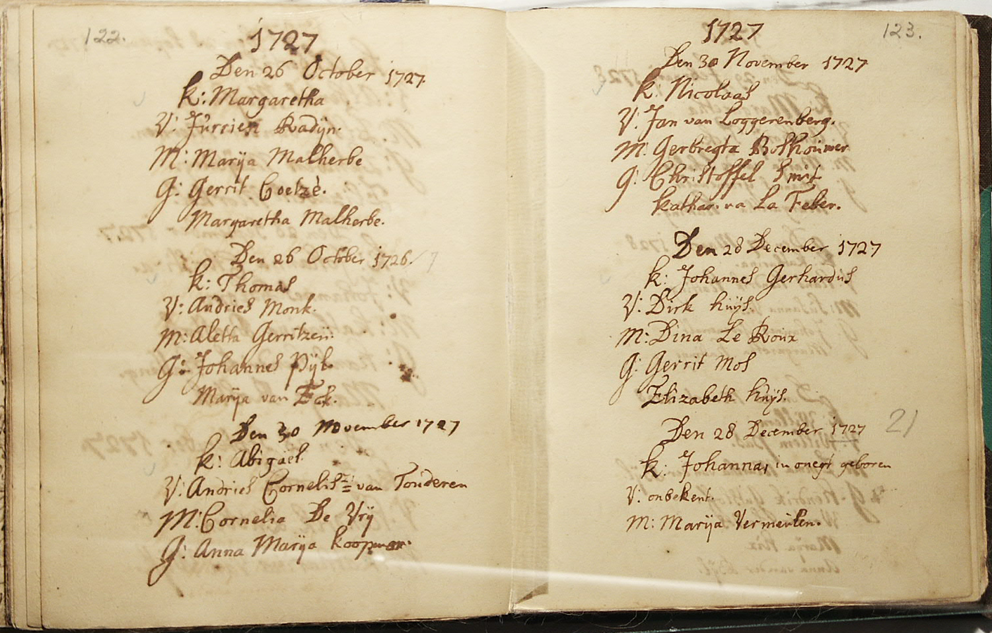 122.
1727
Den 26 October 1727
k: Margaretha
V: Jurrien Radijn.
M: Marija Malherbe
G: Gerrit Coetzè.
Margaretha Malherbe.
Den 26 October 1726. 7
k: Thomas
V: Andries Monk.
M: Aletta Gerritzen:
G: Johannes Pijl.
Marija van Eck.
Den 30 November 1727
k: Abigael.
V: Andries Cornelis= van Tonderen
M: Cornelia De Vrÿ
G: Anna Marija Koopman.
123.
1727
Den 30 November 1727
k: Nicolaas
V: Jan van Loggerenberg.
M: Gerbregta Bothouwer
G: Christoffel Smit
La Febre.
Den 28 December 1727
k: Johannes Gerhardus
V: Dirk Huÿs.
M: Dina Le Roux
G: Gerrit Mos
Elizabeth Huÿs.
Den 28 December 1727
21
k: Johannas, in onegt geboren
V: onbekent.
M: Marija Vermeulen.